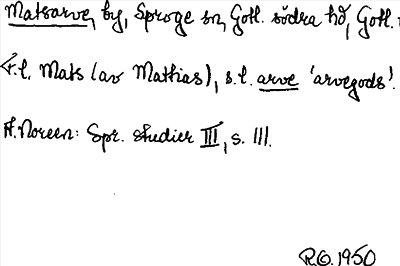 Matsarve, by, Sproge sn, Gotl. södra hd, Gotl.
F.l. Mats (av Mathias), s.l. arve 'arvegods'.
A. Noreen: Spr. studier III, s. 111.
R.G. 1950